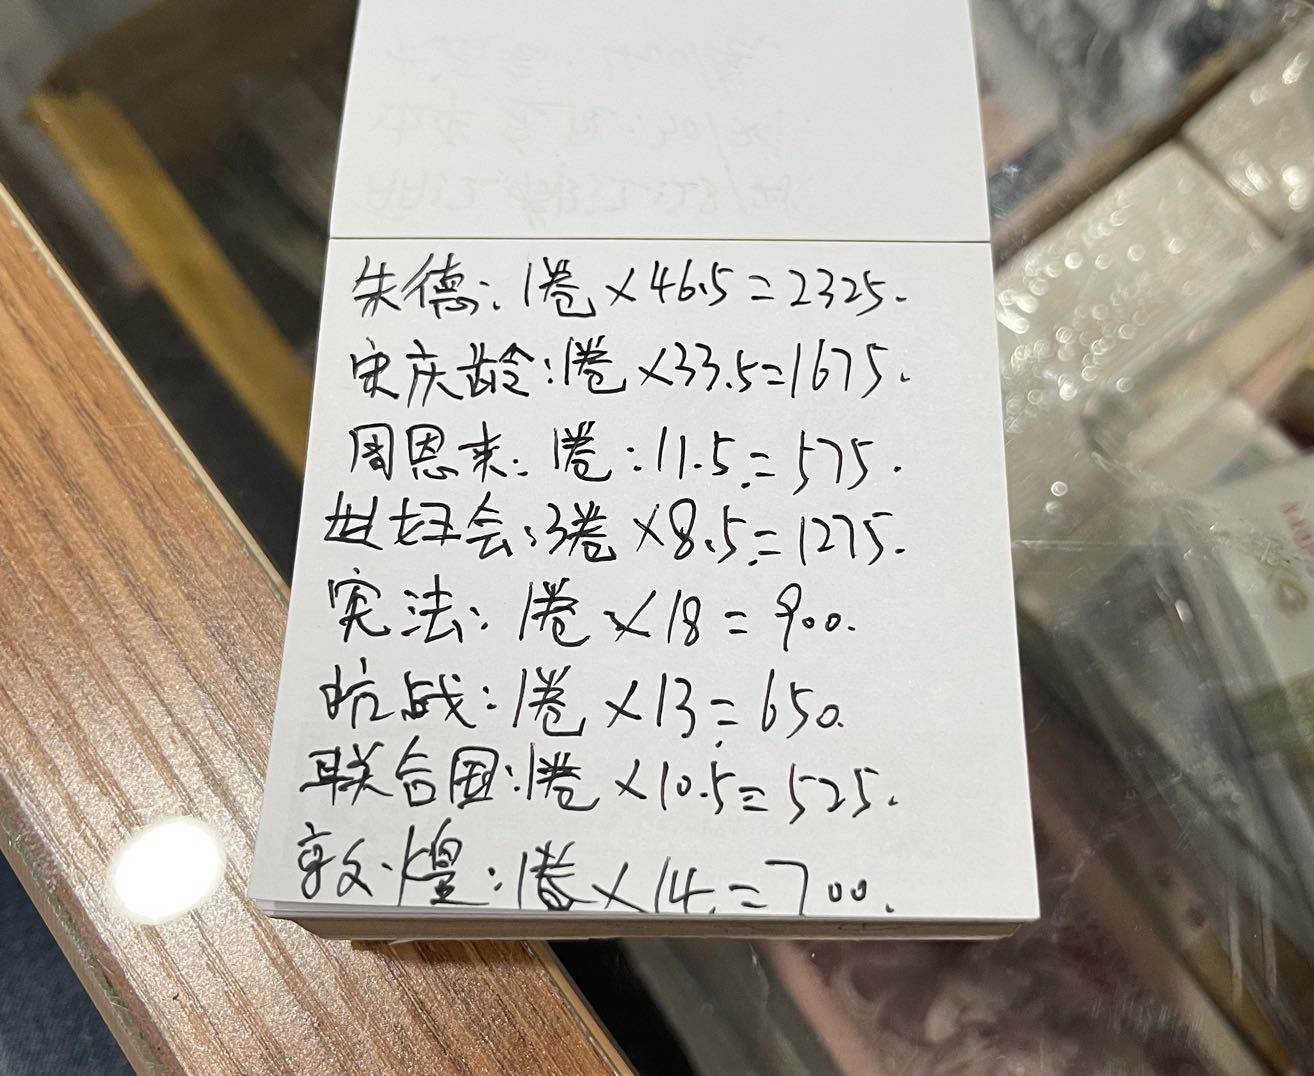 朱德:1卷×46.5=2325.
宋庆龄:1卷×33.5=1675.
周恩来:1卷:11.5=575.
世妇会:3卷×8.5=1275.
宪法:1卷×18=900.
抗战:1卷×13=650.
联合国:1卷×10.5=525.
敦煌:1卷×14=700.